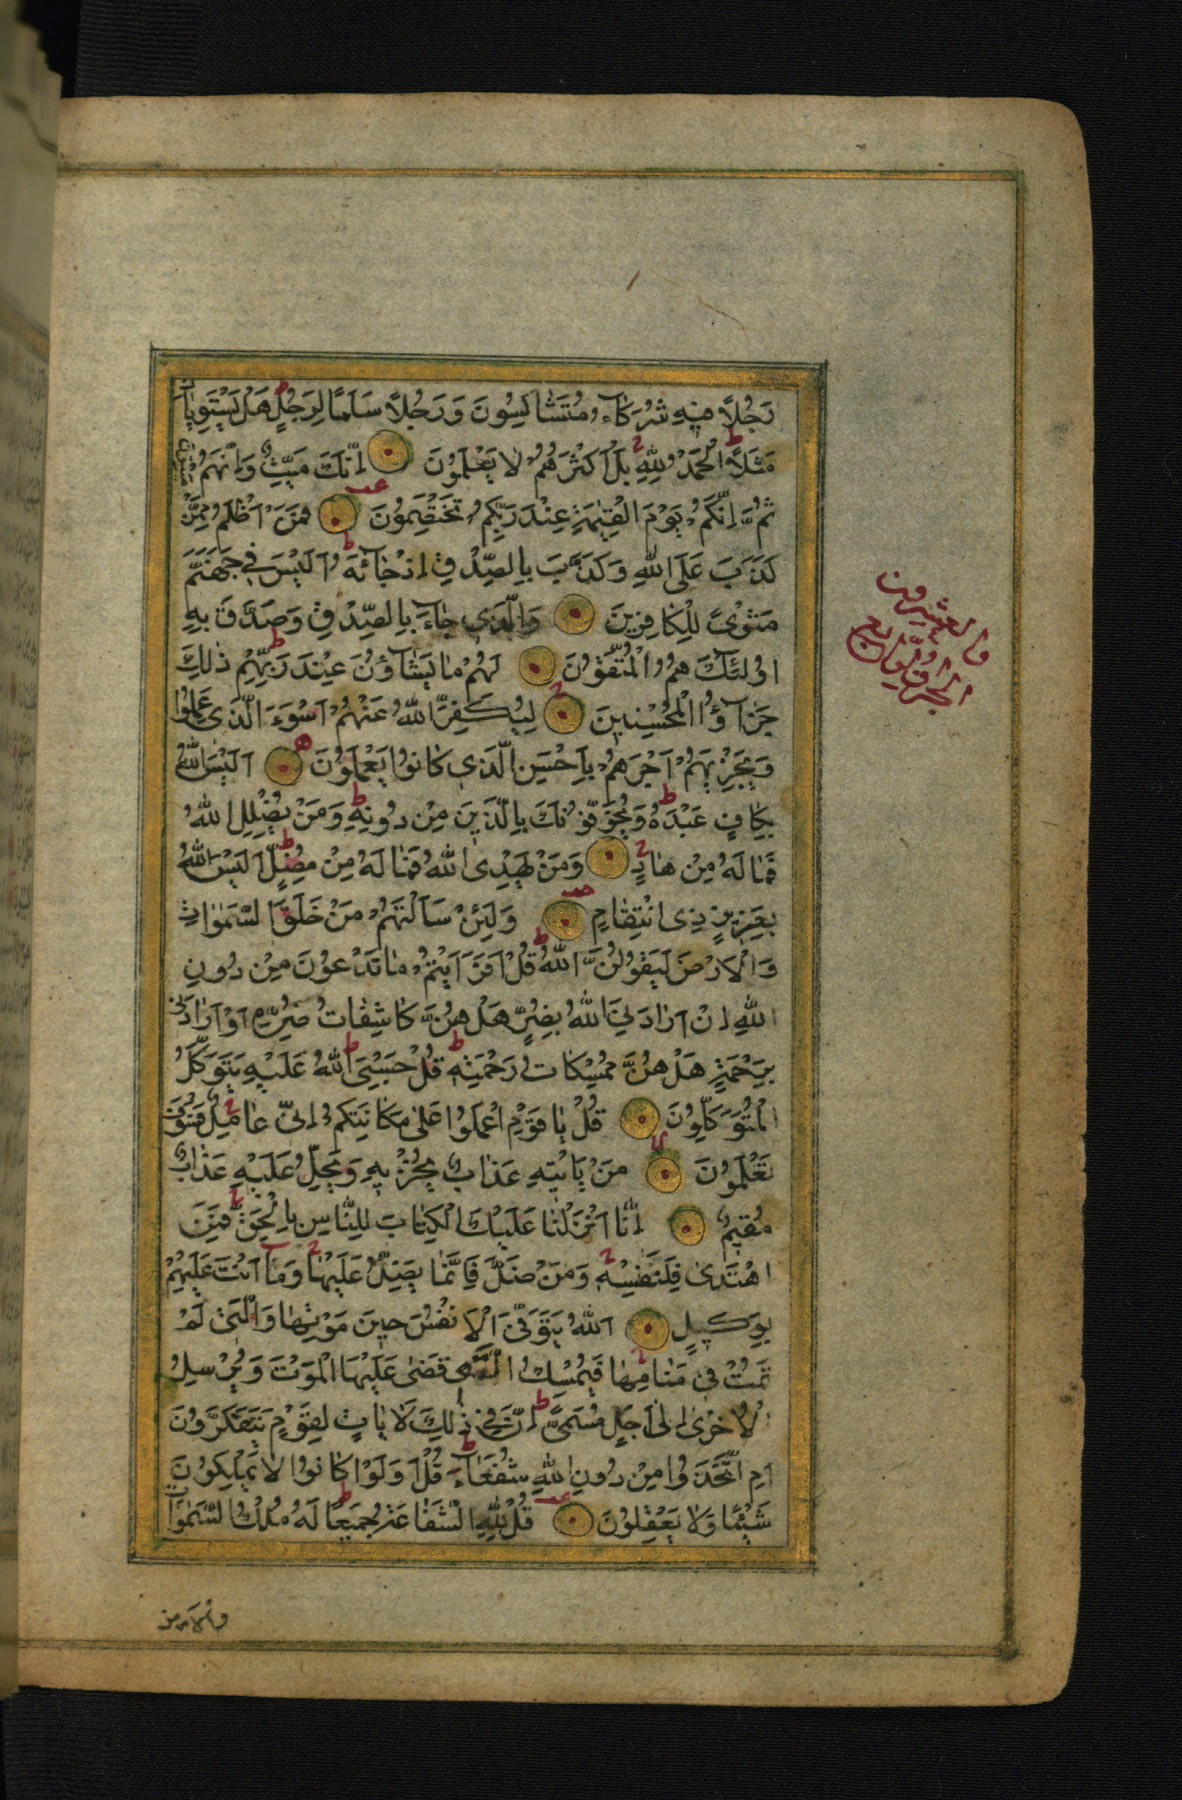 رَجُلًا فِيهِ شُرَكَاءُ مُتَشَاكِسُونَ وَرَجُلًا سَلَمًا لِرَجُلٍ هَلْ يَسْتَوِيَانِ
مَثَلًا الْحَمْدُ لِلّٰهِ بَلْ أَكْثَرُهُمْ لَا يَعْلَمُونَ إِنَّكَ مَيِّتٌ وَإِنَّهُمْ مَيِّتُونَ
ثُمَّ إِنَّكُمْ يَوْمَ الْقِيٰمَةِ عِنْدَ رَبِّكُمْ تَخْتَصِمُونَ فَمَنْ أَظْلَمُ مِمَّنْ
كَذَبَ عَلَى اللّٰهِ وَكَذَّبَ بِالصِّدْقِ إِذْ جَاءَهُ أَلَيْسَ فِي جَهَنَّمَ
مَثْوًى لِلْكَافِرِينَ وَالَّذِي جَاءَ بِالصِّدْقِ وَصَدَّقَ بِهِ
اُولٰئِكَ هُمُ الْمُتَّقُونَ لَهُمْ مَا يَشَاؤُنَ عِنْدَ رَبِّهِمْ ذٰلِكَ
جَزَاؤُا الْمُحْسِنِينَ لِيُكَفِّرَ اللّٰهُ عَنْهُمْ أَسْوَءَ الَّذِي عَمِلُوا
وَيَجْزِيَهُمْ أَجْرَهُمْ بِأَحْسَنِ الَّذِي كَانُوا يَعْمَلُونَ أَلَيْسَ اللّٰهُ
بِكَافٍ عَبْدَهُ وَيُخَوِّفُونَكَ بِالَّذِينَ مِنْ دُونِهِ وَمَنْ يُضْلِلِ اللّٰهُ
فَمَا لَهُ مِنْ هَادٍ وَمَنْ يَهْدِى اللّٰهُ فَمَا لَهُ مِنْ مُضِلٍّ أَلَيْسَ اللّٰهُ
بِعَزِيزٍ ذِى انْتِقَامٍ وَلَئِنْ سَأَلْتَهُمْ مَنْ خَلَقَ السَّمٰوَاتِ
وَالْأَرْضَ لَيَقُولُنَّ اللّٰهُ قُلْ أَفَرَأَيْتُمْ مَا تَدْعُونَ مِنْ دُونِ
اللّٰهِ إِنْ أَرَادَنِيَ اللّٰهُ بِضُرٍّ هَلْ هُنَّ كَاشِفَاتُ ضُرِّهِ أَوْ أَرَادَنِي
بِرَحْمَةٍ هَلْ هُنَّ مُمْسِكَاتُ رَحْمَتِهِ قُلْ حَسْبِيَ اللّٰهُ عَلَيْهِ يَتَوَكَّلُ
الْمُتَوَكِّلُونَ قُلْ يَا قَوْمِ اعْمَلُوا عَلَى مَكَانَتِكُمْ إِنِّي عَامِلٌ فَسَوْفَ
تَعْلَمُونَ مَنْ يَأْتِيهِ عَذَابٌ يُخْزِيهِ وَيَحِلُّ عَلَيْهِ عَذَابٌ
مُقِيمٌ إِنَّا أَنْزَلْنَا عَلَيْكَ الْكِتَابَ لِلنَّاسِ بِالْحَقِّ فَمَنِ
اهْتَدَى فَلِنَفْسِهِ وَمَنْ ضَلَّ فَإِنَّمَا يَضِلُّ عَلَيْهَا وَمَا أَنْتَ عَلَيْهِمْ
بِوَكِيلٍ اَللّٰهُ يَتَوَفَّى الْأَنْفُسَ حِينَ مَوْتِهَا وَالَّتِي لَمْ
تَمُتْ فِي مَنَامِهَا فَيُمْسِكُ الَّتِي قَضَى عَلَيْهَا الْمَوْتَ وَيُرْسِلُ
الْأُخْرَى إِلَى أَجَلٍ مُسَمًّى إِنَّ فِي ذٰلِكَ لَآيَاتٍ لِقَوْمٍ يَتَفَكَّرُونَ
أَمِ اتَّخَذُوا مِنْ دُونِ اللّٰهِ شُفَعَاءَ قُلْ أَوَلَوْ كَانُوا لَا يَمْلِكُونَ
شَيْئًا وَلَا يَعْقِلُونَ قُلْ لِلّٰهِ الشَّفَاعَةُ جَمِيعًا لَهُ مُلْكُ السَّمٰوَاتِ
والارض
الجزؤ الرابع
والعشرون